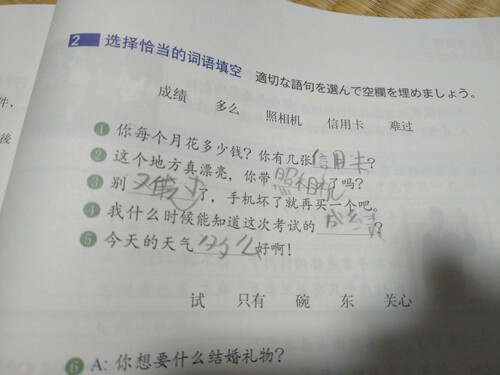 2 选择恰当的词语填空 適切な語句を選んで空欄を埋めましょう。
成绩 多么 照相机 信用卡 难过
1 你每个月花多少钱？你有几张信用卡？
2 这个地方真漂亮，你带照相机了吗？
3 别难过了，手机坏了就再买一个吧。
4 我什么时候能知道这次考试的成绩？
5 今天的天气多么好啊！
试 只有 碗 东 关心
6 A: 你想要什么结婚礼物？
件，
後